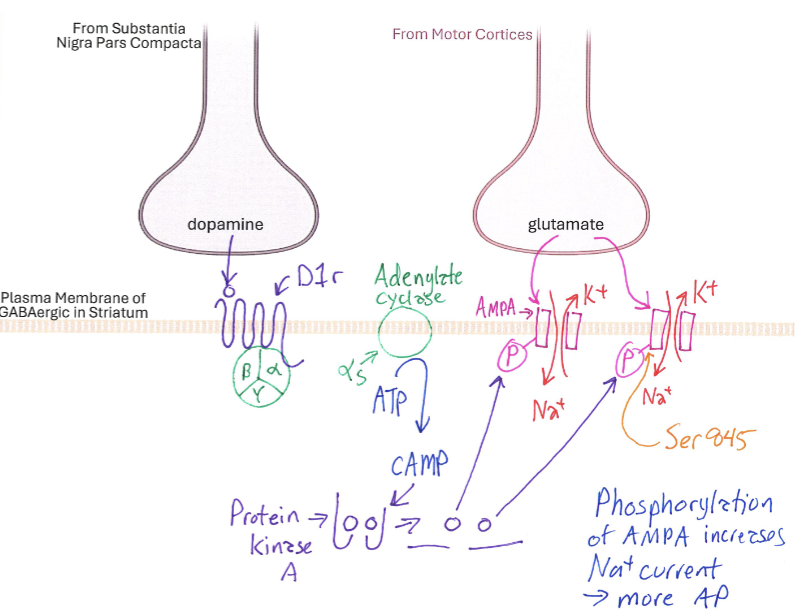 From Substantia
Nigra Pars Compacta
From Motor Cortices
dopamine
glutamate
D1r
Adenylate
cyclase
Plasma Membrane of
GABAergic in Striatum
AMPA
K+
K+
β
α
γ
αs
ATP
P
P
Na+
Na+
Ser 845
cAMP
Protein
kinase
A
Phosphorylation
of AMPA increases
Na+ current
→ more AP